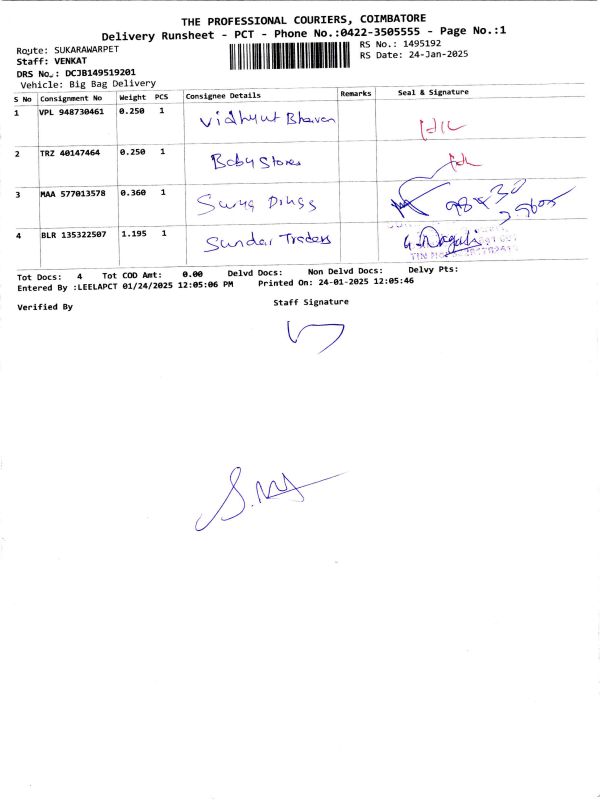 THE PROFESSIONAL COURIERS, COIMBATORE
Delivery Runsheet - PCT - Phone No.:0422-3505555 - Page No.:1
Route: SUKARAWARPET
RS No.: 1495192
Staff: VENKAT
RS Date: 24-Jan-2025
DRS No.: DCJB149519201
Vehicle: Big Bag Delivery
S No Consignment No Weight PCS Consignee Details Remarks Seal & Signature
1 VPL 948730461 0.250 1 Vidhyut Bhavan
2 TRZ 40147464 0.250 1 Baby Stores
3 MAA 577013578 0.360 1 Surya Drugs
4 BLR 135322507 1.195 1 Sundar Traders
Tot Docs: 4 Tot COD Amt: 0.00 Delvd Docs: Non Delvd Docs: Delvy Pts:
Entered By :LEELAPCT 01/24/2025 12:05:06 PM Printed On: 24-01-2025 12:05:46
Verified By Staff Signature